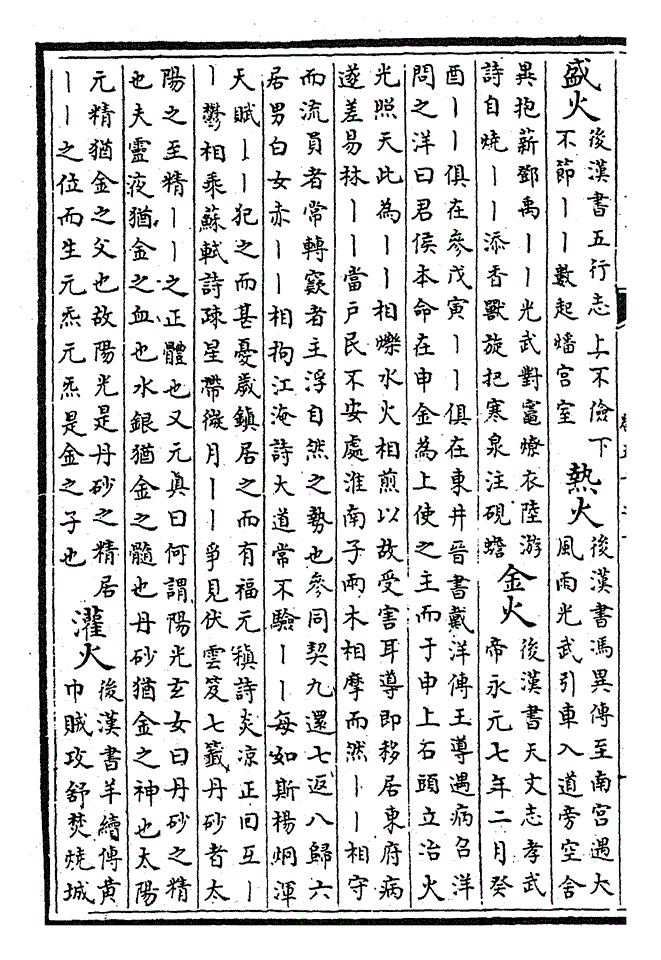 盛火
後漢書五行志上不儉下
不節丨丨數起燔宮室
熱火
後漢書馮異傳至南宮遇大
風雨光武引車入道旁空舍
異抱薪鄧禹丨丨光武對竈燎衣陸游
詩自燒丨丨添香獸旋把寒泉注硯蟾
金火
後漢書天文志孝武
帝永元七年二月癸
酉丨丨俱在參戊寅丨丨俱在東井晉書戴洋傳王導遇病召洋
問之洋曰君侯本命在申金為上使之主而于申上石頭立冶火
光照天此為丨丨相爍水火相煎以故受害耳導即移居東府病
遂差易林丨丨當戶民不安處淮南子兩木相摩而然丨丨相守
而流員者常轉窾者主浮自然之勢也參同契九還七返八歸六
居男白女赤丨丨相拘江淹詩大道常不驗丨丨每如斯楊炯渾
天賦丨丨犯之而甚憂歲鎮居之而有福元稹詩炎涼正回互丨
丨鬱相乘蘇軾詩疎星帶微月丨丨爭見伏雲笈七籤丹砂者太
陽之至精丨丨之正體也又元真曰何謂陽光玄女曰丹砂之精
也夫靈液猶金之血也水銀猶金之髓也丹砂猶金之神也太陽
元精猶金之父也故陽光是丹砂之精居
丨丨之位而生元炁元炁是金之子也
灌火
後漢書羊續傳黃
巾賊攻舒焚燒城